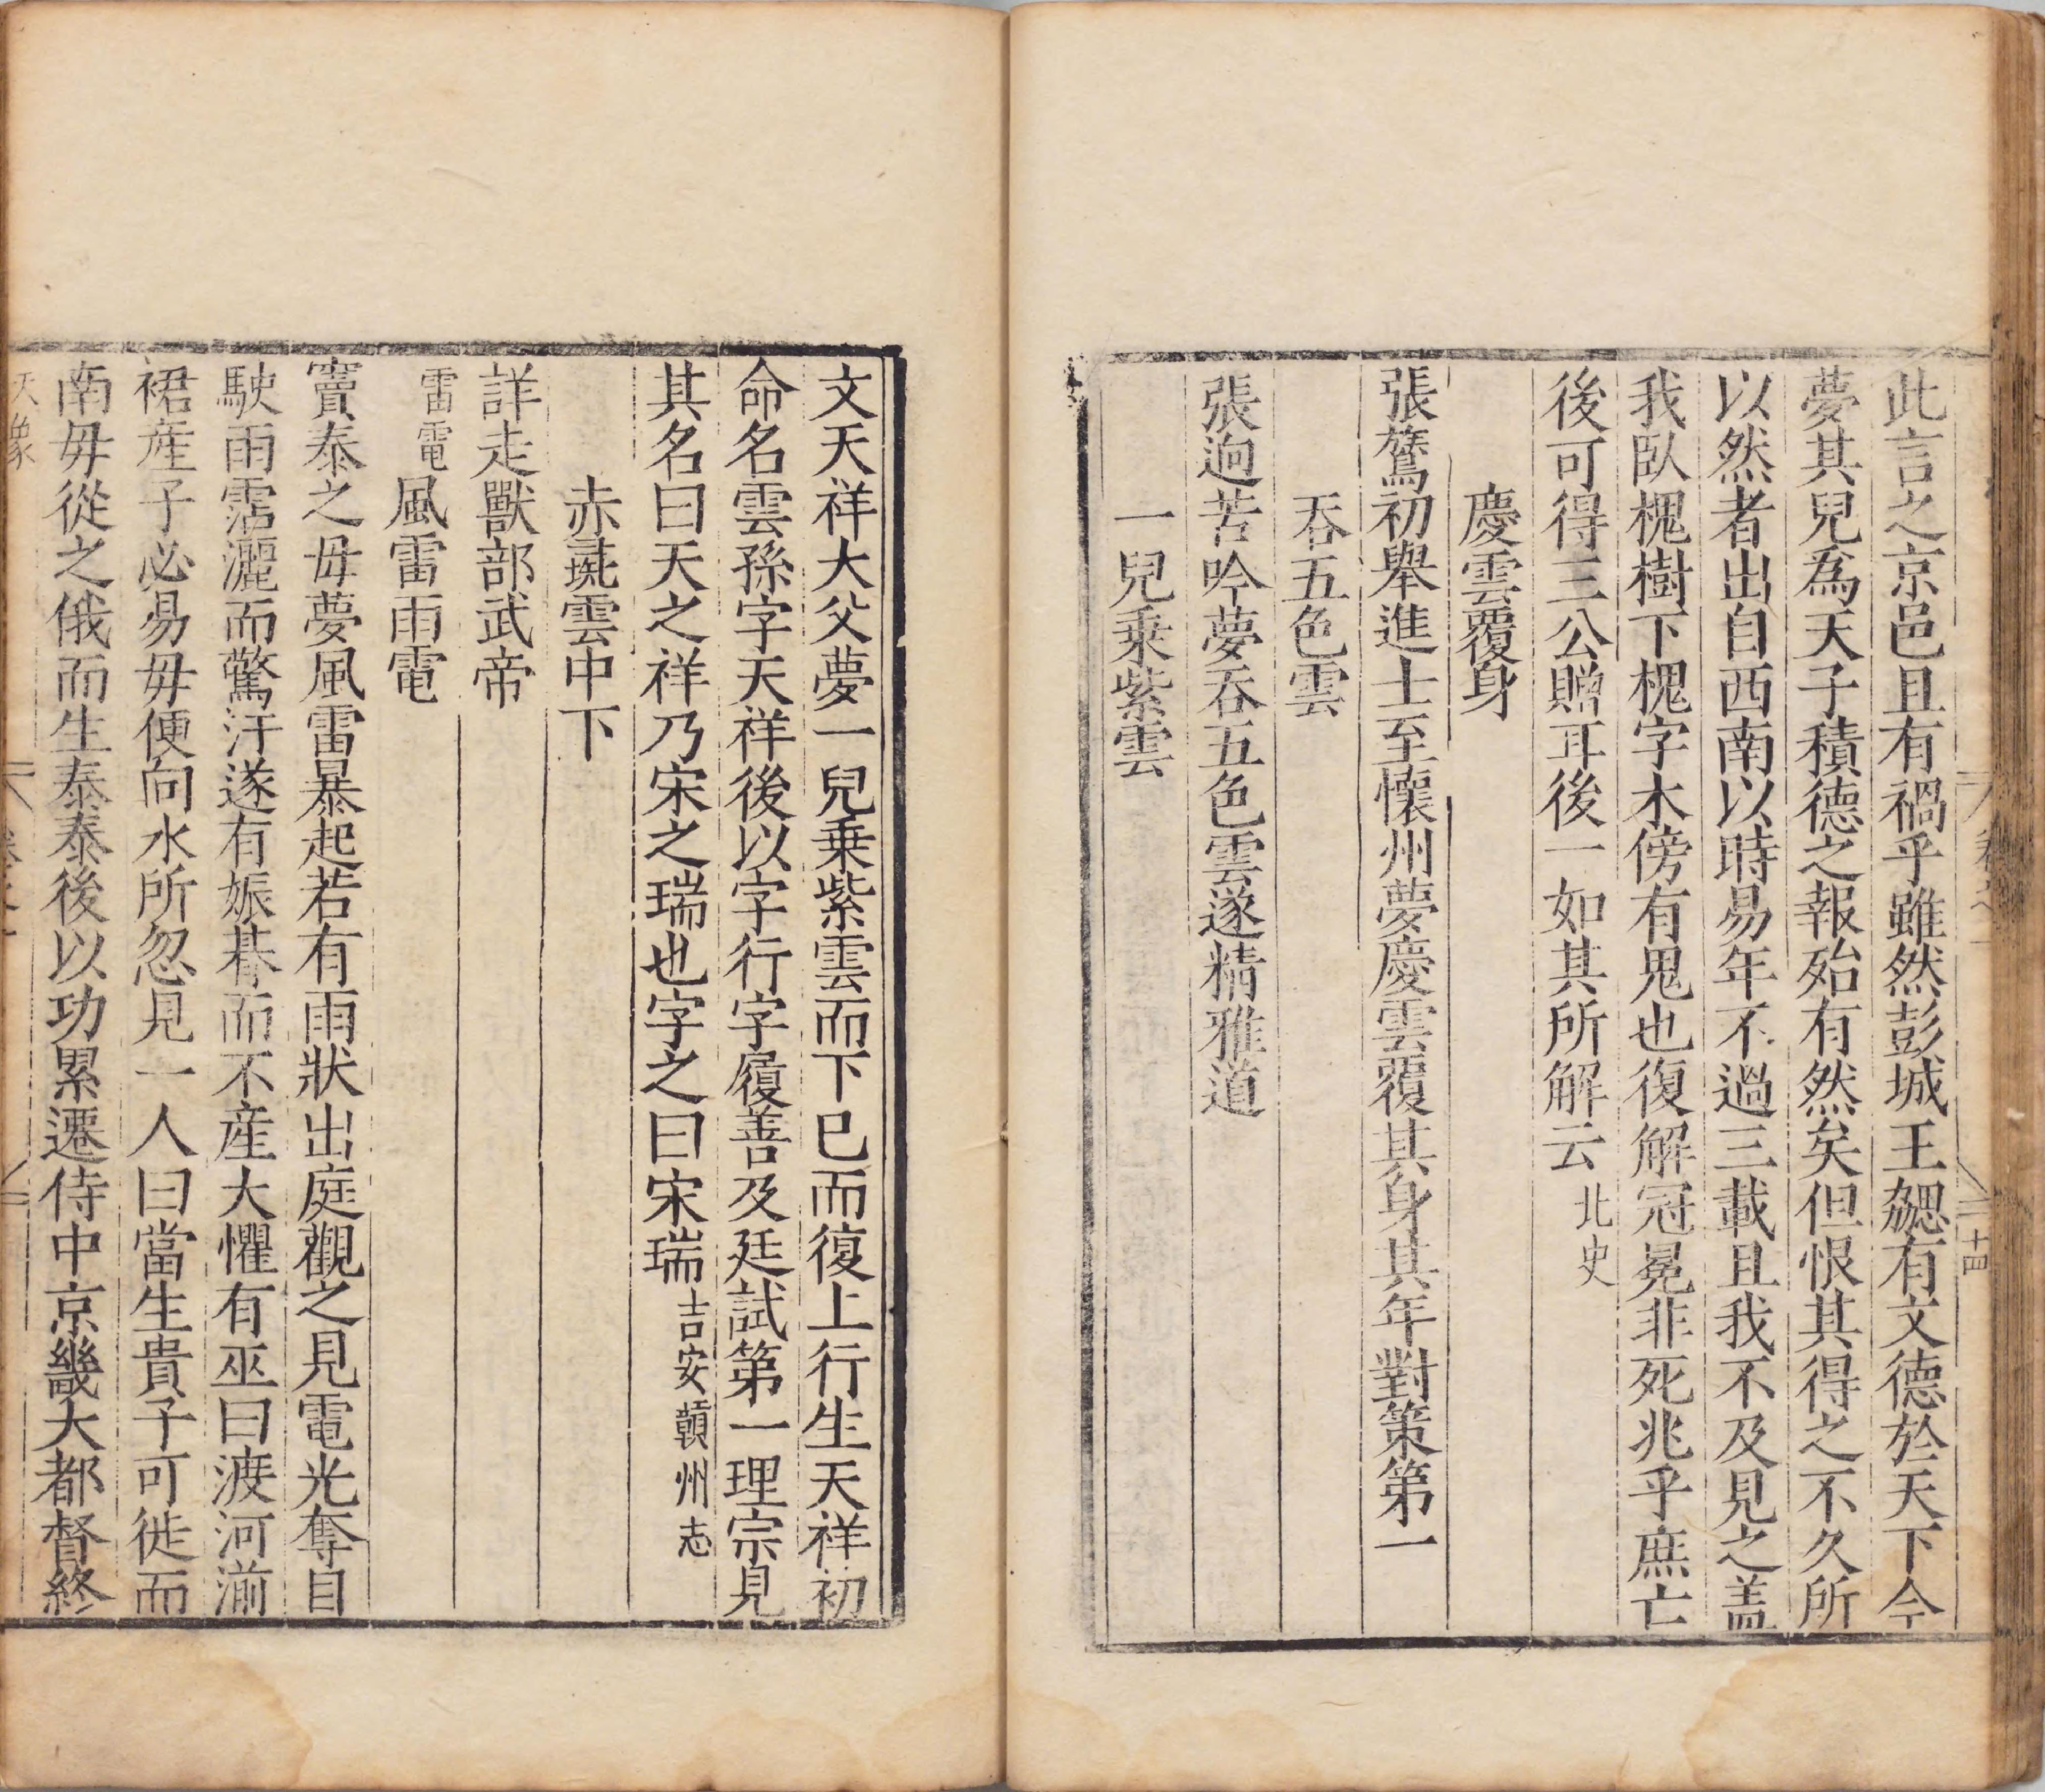 此言之京邑且有禍乎雖然彭城王勰有文德於天下今
夢其兒為天子積德之報殆有然矣但恨其得之不久所
以然者出自西南以時易年不過三載且我不及見之盖
我臥槐樹下槐字木傍有鬼也復解冠冕非死兆乎庶亡
後可得三公贈耳後一如其所解云北史
慶雲覆身
張鷟初舉進士至懷州夢慶雲覆其身其年對策第一
吞五色雲
張迥苦吟夢吞五色雲遂精雅道
一兒乗紫雲
十四
文天祥大父夢一兒乗紫雲而下巳而復上行生天祥初
命名雲孫字天祥後以字行字履善及廷試第一理宗見
其名曰天之祥乃宋之瑞也字之曰宋瑞吉安贑州志
赤彪雲中下
詳走獸部武帝
雷電
風雷雨電
竇泰之毋夢風雷暴起若有雨狀出庭觀之見電光奪目
駛雨霑灑而驚汗遂有娠朞而不産大懼有巫曰渡河湔
裙産子必易毋便向水所忽見一人曰當生貴子可徙而
南毋從之俄而生泰泰後以功累遷侍中京畿大都督終
天象